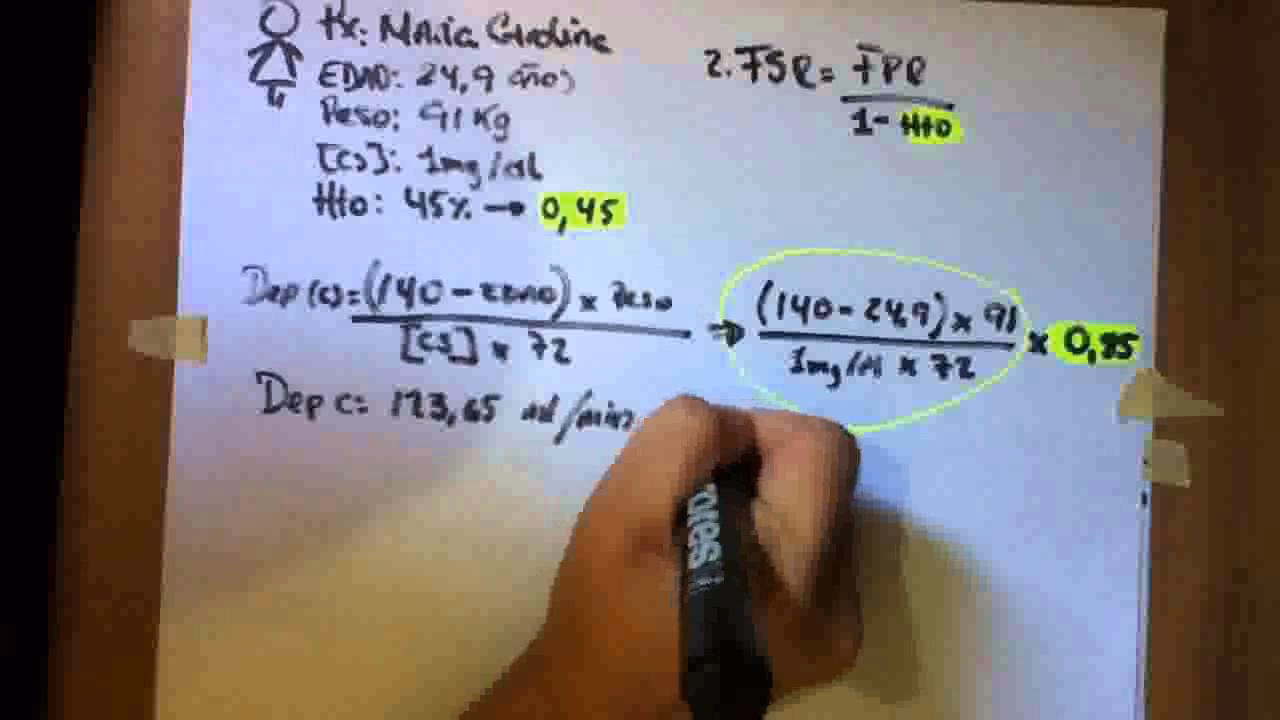 Hx: Maria Caroline
EDAD: 24,9 años
Peso: 91 Kg
[Cs]: 1mg/dL
Hto: 45% → 0,45
2. FSR = FPR
1 - Hto
Dep (c) = (140 - EDAD) x Peso
[Cs] x 72
→ (140 - 24,9) x 91
1mg/dl x 72
x 0,85
Dep c: 123,65 ml/min